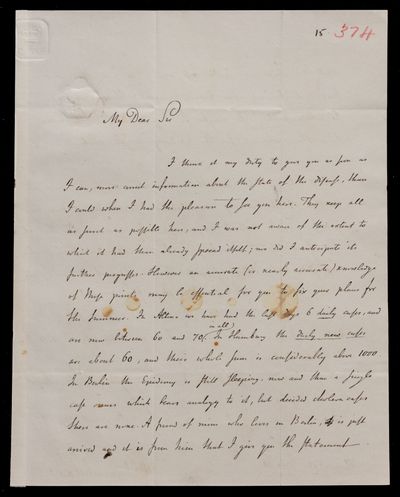 15 374
My Dear Sir
I think it my duty to give you as soon as
I can, more correct information about the state of the disease, than
I could when I had the pleasure to see you here. They keep all
as secret as possible here, and I was not aware of the extent to
which it had then already spread itself; nor did I anticipate its
further progress. However an accurate (or nearly accurate) knowledge
of these points may be essential for you to fix your plans for
the Summer. In Altona we have had the last days 6 daily cases, and
are now between 60 and 70
in all
In Hamburg the daily new cases
are about 60, and their whole sum is considerably above 1000
In Berlin the Epidemy is still sleeping. now and then a single
case occurs which bears analogy to it, but decided cholera cases
there are none. A friend of mine who lives in Berlin, is just
arrived and it is from him that I give you the statement